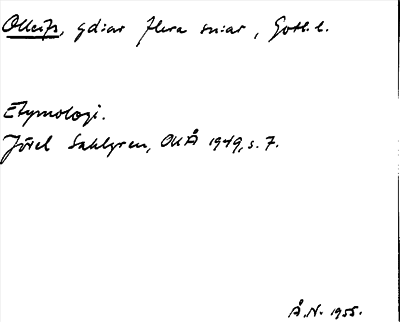 Olleifs, gdiar flera sniar, Gotl. l.
Etymologi.
Jöran Sahlgren, OUÅ 1949, s. 7.
Å.N. 1955.